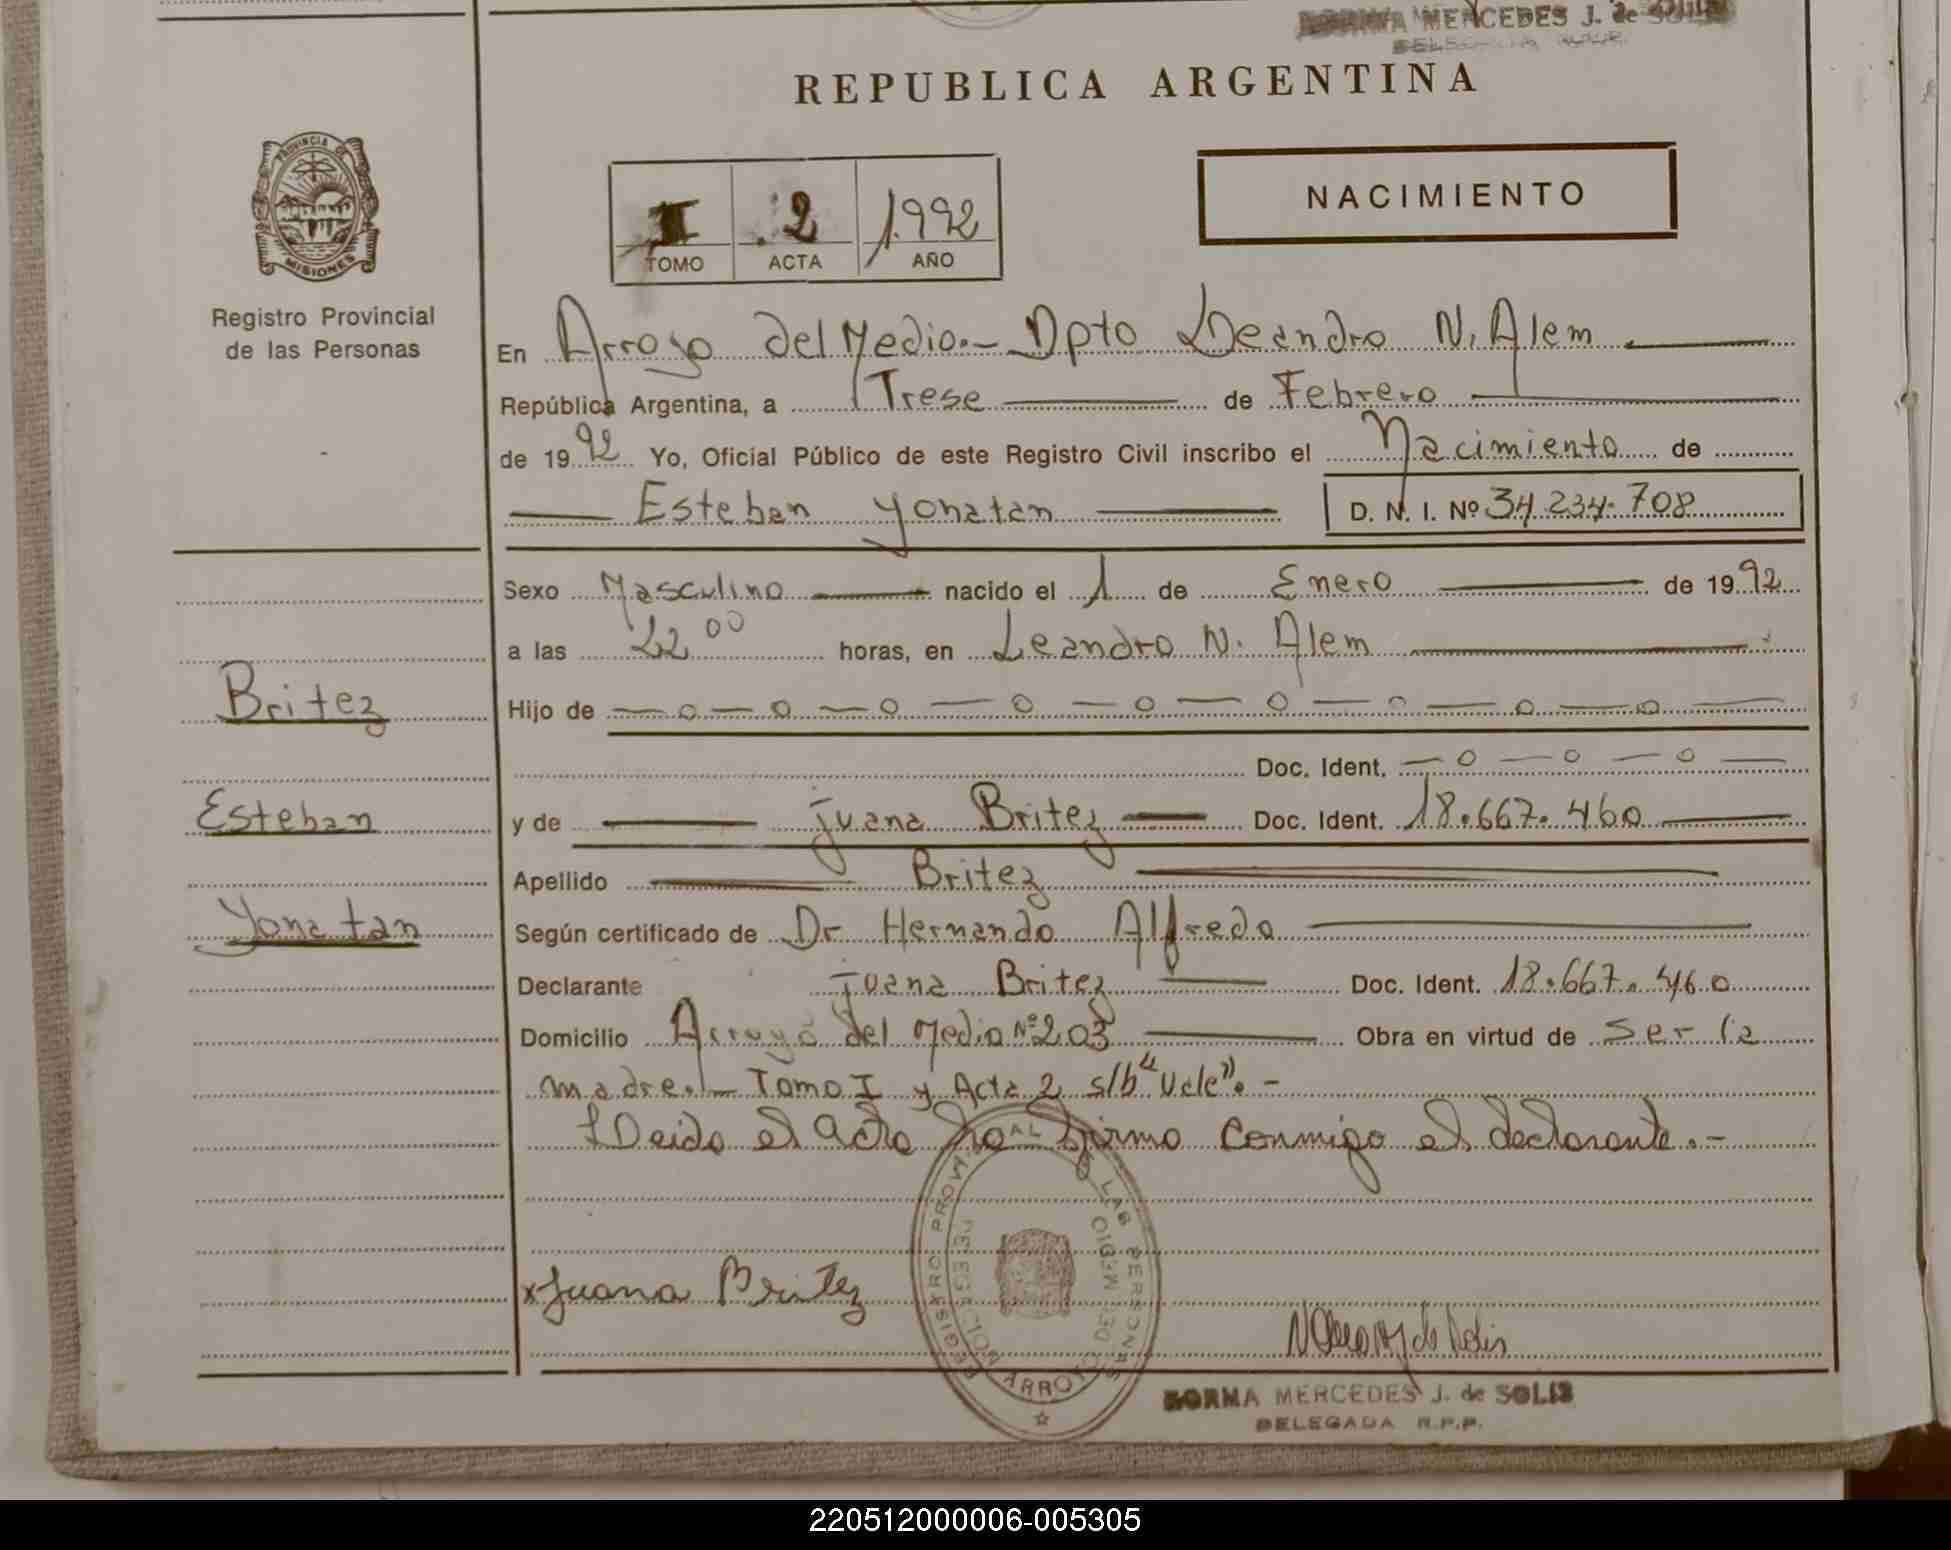 MERCEDES J. de SOLIS
REPUBLICA ARGENTINA
PROVINCIA DE
MISIONES
Registro Provincial
de las Personas
I 2 1.992
TOMO ACTA AÑO
NACIMIENTO
En Arroyo del Medio.- Dpto Leandro N. Alem
República Argentina, a Trese de Febrero
de 1992 Yo, Oficial Público de este Registro Civil inscribo el Nacimiento de
Esteban Yonatan D. N. I. Nº 34.234.708
Sexo Masculino nacido el 1 de Enero de 1992
a las 22 00 horas, en Leandro N. Alem
Britez
Esteban
Yonatan
Hijo de — o — o — o — o — o — o — o — o — o —
Doc. Ident. — o — o — o —
y de Juana Britez Doc. Ident. 18.667.460
Apellido Britez
Según certificado de Dr Hernando Alfredo
Declarante Juana Britez Doc. Ident. 18.667.460
Domicilio Arroyo del Medio Nº 203 Obra en virtud de ser la
madre.- Tomo I y Acta 2 s/b "Vale".-
Leida el acta la firmo conmigo el declarante.-
REGISTRO PROVINCIAL DE LAS PERSONAS
ARROYO DEL MEDIO
x Juana Britez
NORMA MERCEDES J. de SOLIS
DELEGADA R.P.P.
220512000006-005305